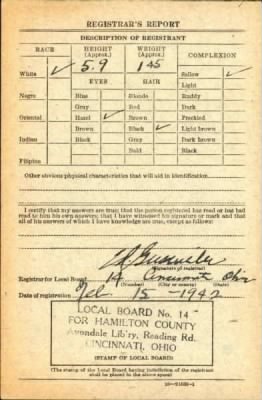 REGISTRAR'S REPORT
DESCRIPTION OF REGISTRANT
RACE HEIGHT (Approx.) WEIGHT (Approx.) COMPLEXION
White ✓ 5.9 145 Sallow ✓
EYES HAIR Light
Negro Blue Blonde Ruddy
Gray Red Dark
Oriental Hazel ✓ Brown Freckled
Brown Black ✓ Light brown
Indian Black Gray Dark brown
Bald Black
Filipino
Other obvious physical characteristics that will aid in identification
I certify that my answers are true; that the person registered has read or has had
read to him his own answers; that I have witnessed his signature or mark and that
all of his answers of which I have knowledge are true, except as follows:
(Signature of registrar)
Registrar for Local Board 14 Cincinnati Ohio
(Number) (City or county) (State)
Date of registration Feb 15-1942
LOCAL BOARD No. 14
FOR HAMILTON COUNTY
Avondale Lib'ry, Reading Rd.
CINCINNATI, OHIO
(STAMP OF LOCAL BOARD)
(The stamp of the Local Board having jurisdiction of the registrant
shall be placed in the above space)